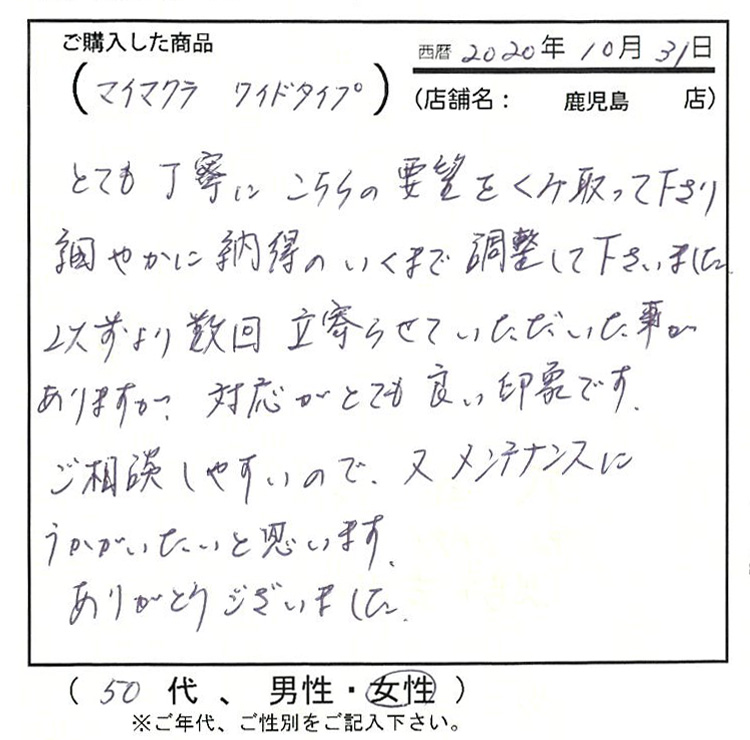 ご購入した商品
西暦 2020年 10月 31日
(マイマクラ ワイドタイプ)
(店舗名： 鹿児島 店)
とても丁寧に こちらの要望をくみ取って下さり
細やかに納得のいくまで調整して下さいました
以ずより数回 立寄らせていただいた事が
ありますが、対応がとても良い印象です。
ご相談しやすいので、又メンテナンスに
うかがいたいと思います。
ありがとうございました。
( 50 代 、 男性・女性 )
※ご年代、ご性別をご記入下さい。